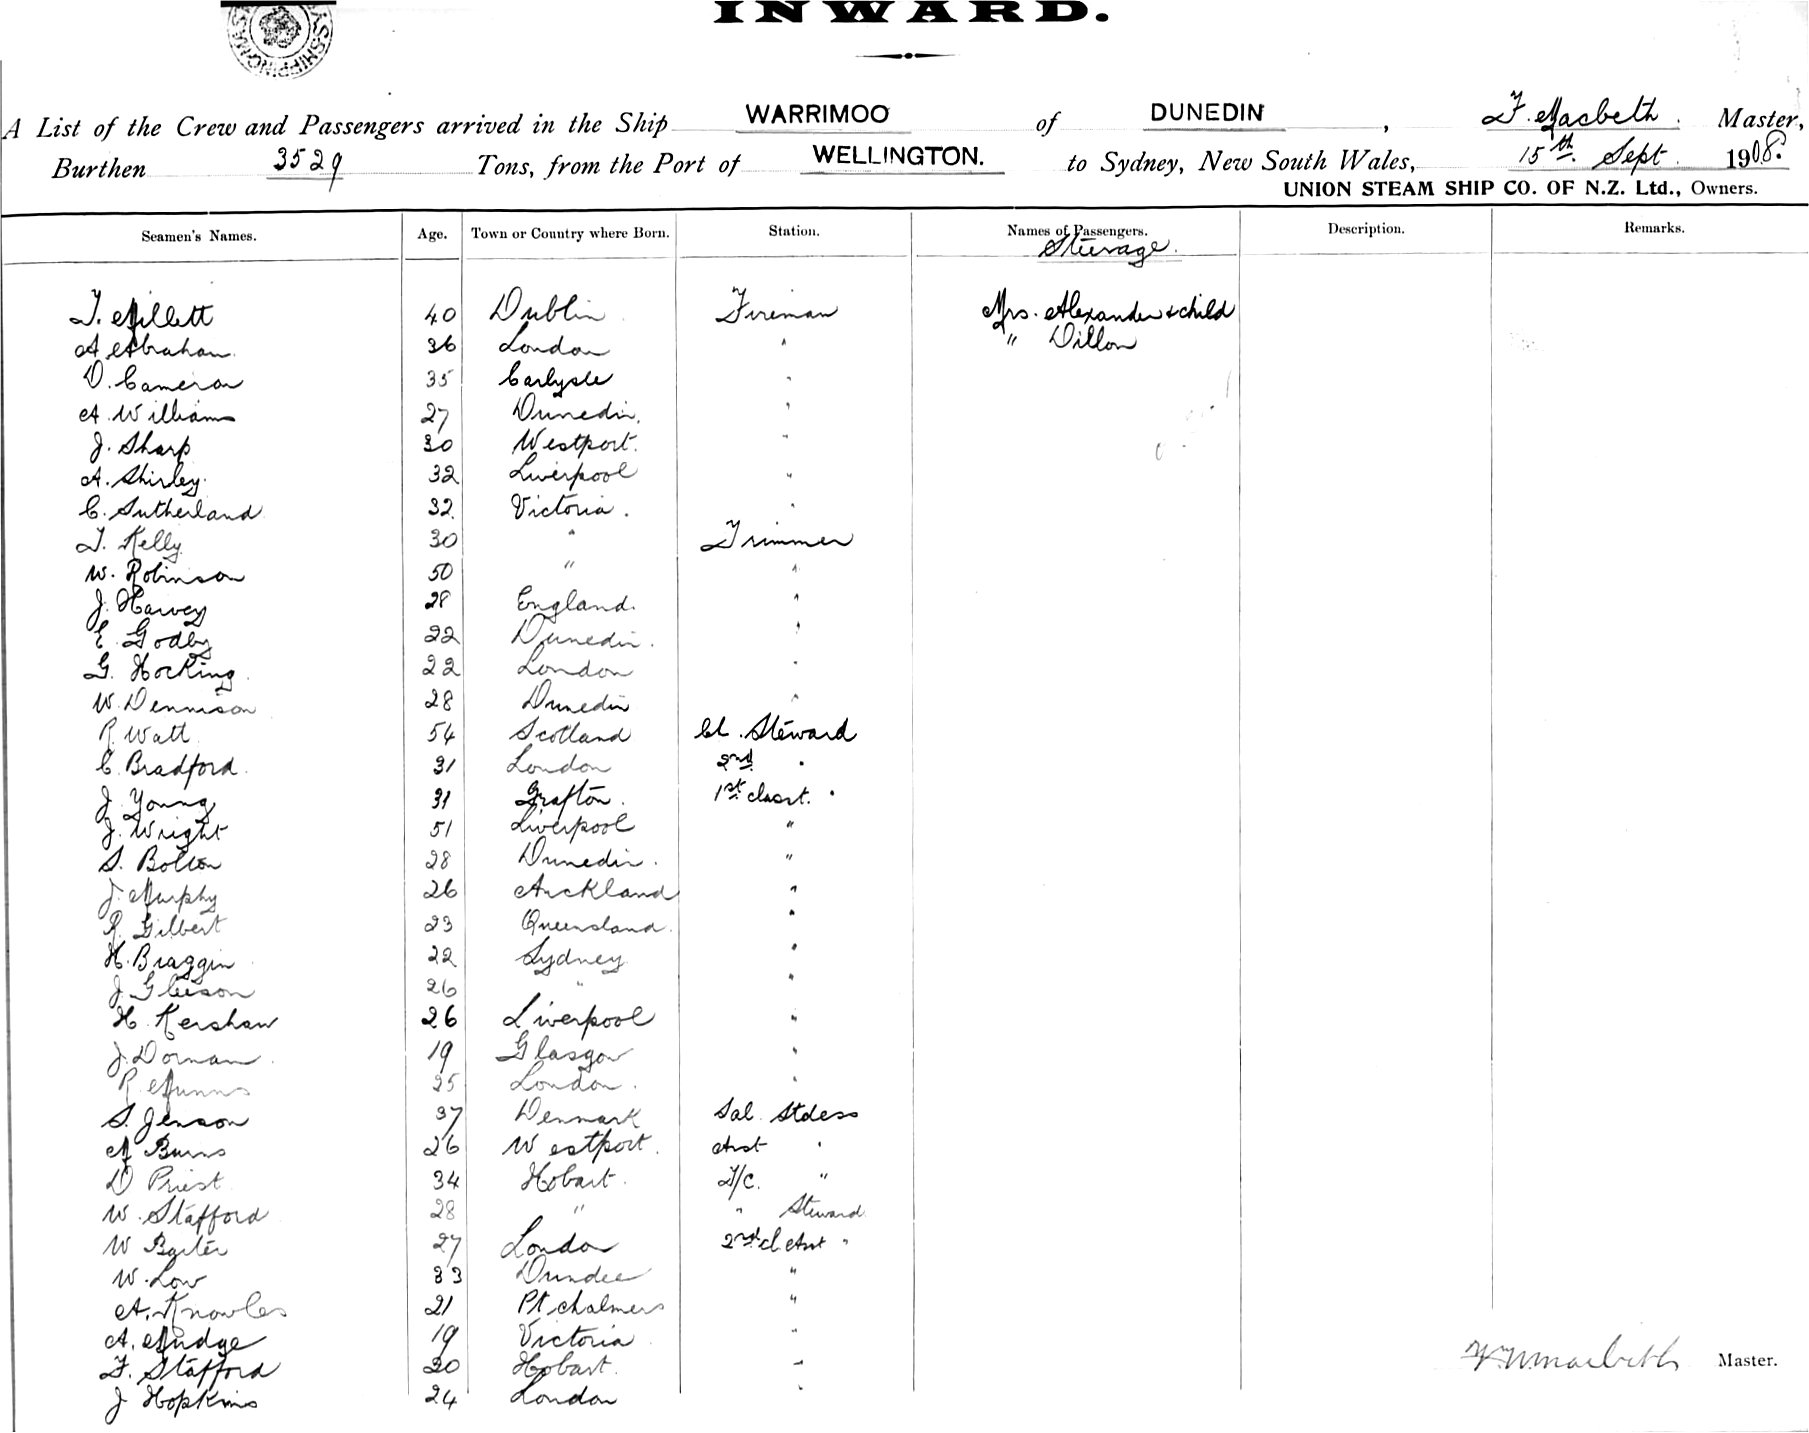 INWARD.
A List of the Crew and Passengers arrived in the Ship WARRIMOO of DUNEDIN, F. Macbeth. Master,
Burthen 3529 Tons, from the Port of WELLINGTON. to Sydney, New South Wales, 15th Sept. 1908.
UNION STEAM SHIP CO. OF N.Z. Ltd., Owners.
Seamen's Names. Age. Town or Country where Born. Station. Names of Passengers. Description. Remarks.
Steerage.
T. Millett 40 Dublin Fireman Mrs. Alexander & child
A. Abraham 36 London " " Dillon
D. Cameron 35 Carlysle "
A. Williams 27 Dunedin. "
J. Sharp 30 Westport. "
A. Shirley. 32 Liverpool "
C. Sutherland 32 Victoria. "
T. Kelly 30 " Trimmer
W. Robinson 50 " "
J. Harvey 28 England. "
E. Godby 22 Dunedin. "
G. Hocking. 22 London "
W. Dennison 28 Dunedin "
R. Watt 54 Scotland Ch. Steward
C. Bradford. 31 London 2nd "
J. Young 31 Grafton. 1st classt. "
J. Wright 51 Liverpool "
S. Bolton 28 Dunedin. "
J. Murphy 26 Auckland "
R. Gilbert 23 Queensland. "
H. Braggin 22 Sydney "
J. Gleeson 26 " "
H. Kershaw 26 Liverpool "
J. Dornan. 19 Glasgow "
R. Munns 25 London. "
S. Jenson 37 Denmark Sal. Stdess
M Burns 26 Westport. Asst "
D Priest 34 Hobart. T/C. "
W. Stafford 28 " " Steward.
W Baxter 27 London 2nd cl Asst "
W. Low 33 Dundee "
A. Knowles 21 Pt chalmers "
A. Mudge 19 Victoria "
F. Stafford 20 Hobart. "
J Hopkins 24 London "
Master.